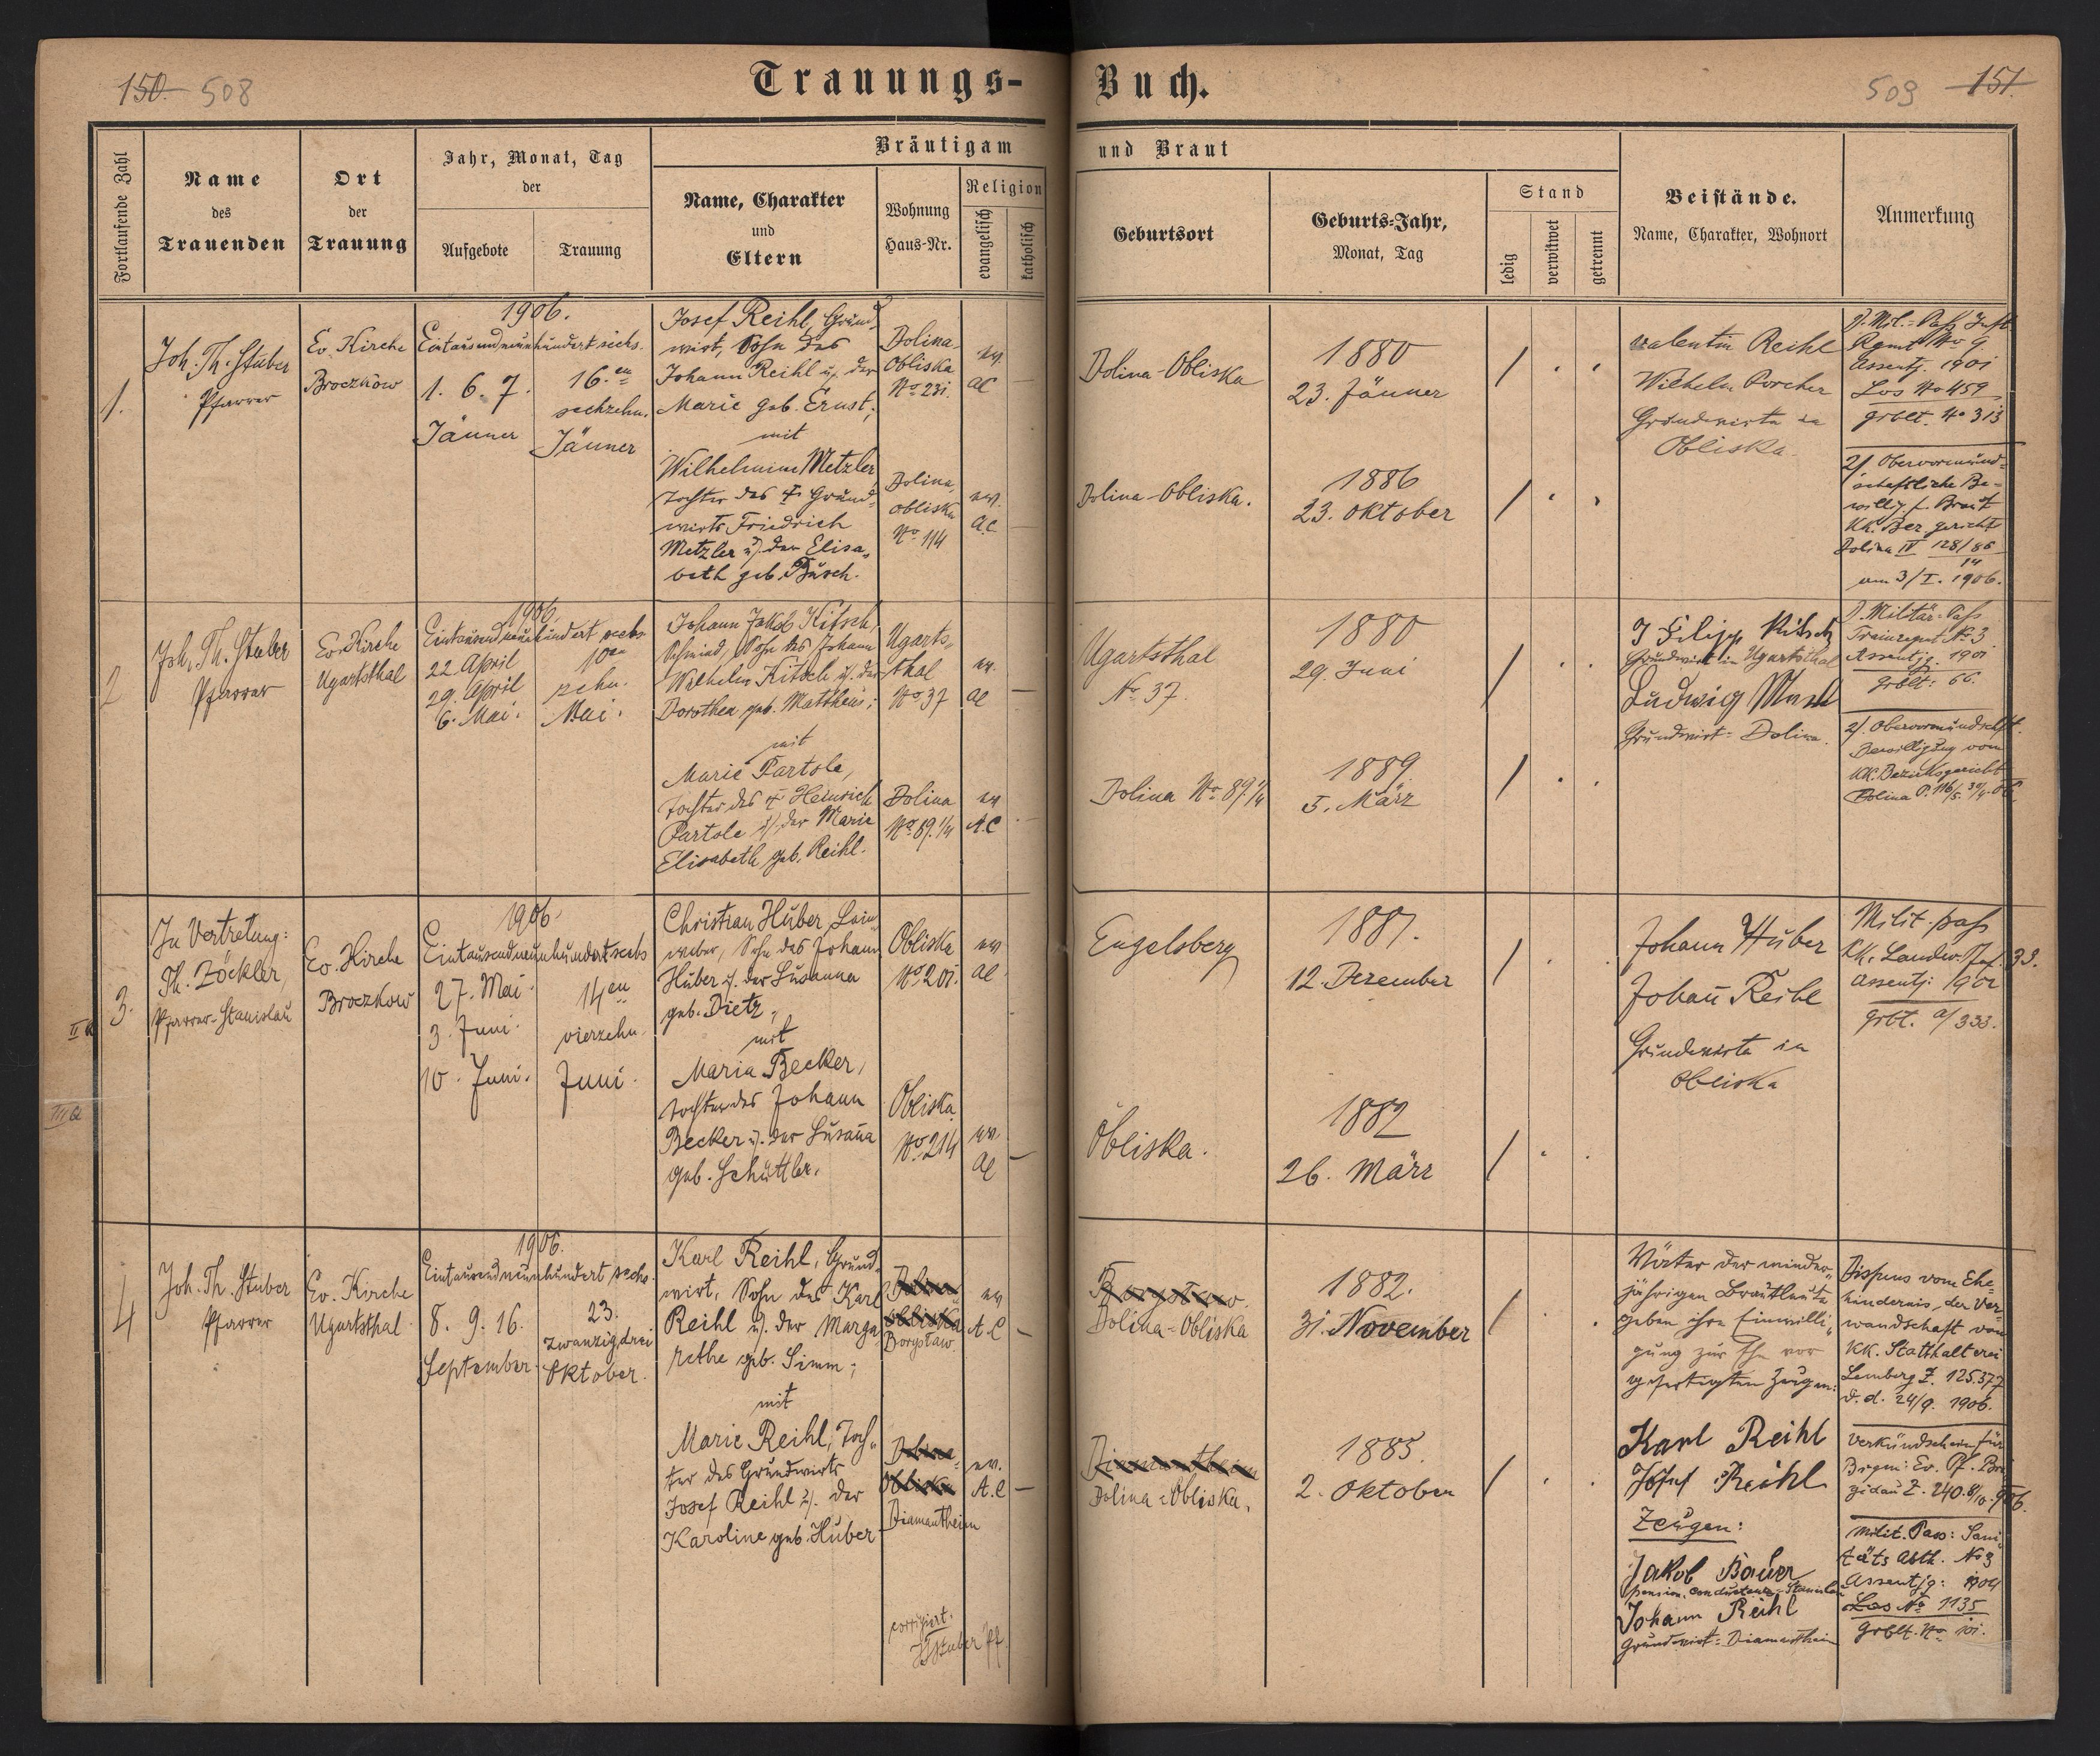 150. 508
Trauungs-
Buch.
509 151.
Fortlaufende Zahl
Name
des
Trauenden
Ort
der
Trauung
Jahr, Monat, Tag
der
Aufgebote
Trauung
Bräutigam
und Braut
Name, Charakter
und
Eltern
Wohnung
Haus-Nr.
Religion
evangelisch
katholisch
Geburtsort
Geburts-Jahr,
Monat, Tag
Stand
ledig
verwitwet
getrennt
Beistände.
Name, Charakter, Wohnort
Anmerkung
1.
Joh. Th. Stuber
Pfarrer
Ev. Kirche
Broczków
1906.
Eintausendneunhundert sechs.
1. 6. 7.
Jänner
16.en
sechzehn.
Jänner
Josef Reihl, Grund-
wirt, Sohn des
Johann Reihl u. der
Marie geb. Ernst;
mit
Wilhelmine Metzler
Tochter des † Grund-
wirts Friedrich
Metzler u. der Elisa-
beth geb. Busch.
Dolina-
Obliska
No 231.
ev.
AC
Dolina,
obliska
No 114
ev.
A.C
Dolina-Obliska
1880
23. Jänner
Dolina-Obliska.
1886
23. Oktober
Valentin Reihl
Wilhelm Porcher
Grundwirte in
Obliska.
1. Mil.-Paß Inft
Rgmt No 9
Assentj. 1901
Los No 459
grblt. No 313
2/ Obervormund-
schaftliche Be-
willig. f. Braut
KK. Bez. gericht
Dolina IV 128/86
14
am 3/I. 1906.
2
Joh. Th. Stuber
Pfarrer
Ev. Kirche
Ugartsthal
1906.
Eintausendneunhundert sechs
22 April
29. April
6. Mai.
10en
zehn.
Mai.
Johann Jakob Kitsch,
Schmied, Sohn des Johann
Wilhelm Kitsch u. der
Dorothea geb. Mattheus;
mit
Marie Partole,
Tochter des † Heinrich
Partole u. der Marie
Elisabeth geb. Reihl.
Ugarts-
thal
No 37
ev.
AC
Dolina
No 89.1/4
ev
A.C
Ugartsthal
No. 37.
1880
29. Juni
Dolina No 89.1/4
1889.
5. März
J Filipp Kitsch
Grundwirt in Ugartsthal
Ludwig
Grundwirt = Dolina.
1. Militär-Paß
Trainregmt No 3
Assentjg. 1901
Grblt: 66.
2/. Obervormundschft.
Bewilligung vom
KK. Bezirksgericht
Dolina
3.
In Vertretung:
Th. Zöckler,
Pfarrer-Stanislau
Ev. Kirche
Broczkow
1906.
Eintausendneunhundertsechs
27. Mai.
3. Juni.
10. Juni.
14en
vierzehn.
Juni.
Christian Huber, Lein-
weber, Sohn des Johann
Huber u. der Susanna
geb. Dietz,
mit
Maria Becker,
Tochter des Johann
Becker u. der Susana
geb. Schüttler.
Obliska
No 201.
ev.
AC
Obliska
No 214
ev.
AC
Engelsberg
1881.
12. Dezember
Obliska.
1882
26. März
Johann Huber
Johan Reihl
Grundwirte in
Obliska
Milit. paß
KK. Landw. Inf. 33.
Assentj: 1902
grbt. a/333.
4
Joh. Th. Stuber
Pfarrer
Ev. Kirche
Ugartsthal
1906.
Eintausendneunhundert sechs.
8. 9. 16.
September.
23.
zwanzigdrei
Oktober.
Karl Reihl, Grund-
wirt, Sohn des Karl
Reihl u. der Marga-
rethe geb. Simm;
mit
Marie Reihl, Toch-
ter des Grundwirts
Josef Reihl u. der
Karoline geb. Huber
Dolina
obliska
Borysław.
ev
A.C
Dolina-
Obliska
Diamantheim
ev.
A.C
corrigiert.
Stuber Pf.
Borysław.
Dolina-Obliska
1882.
31. November
Diamantheim
Dolina-Obliska.
1885.
2. Oktober
Väter der minder-
jährigen Brautleute
geben ihre Einwilli-
gung zur Ehe vor
gefertigten Zeugen:
Karl Reihl
Josef Reihl
Zeugen:
Jakob Bauer
pension. conducteur = Stanislau
Johann Reihl
Grundwirt = Diamantheim
Dispens vom Ehe-
hindernis, der Ver-
wandschaft von
KK. Statthalterei
Lemberg Z. 125.377
d. d. 24/9. 1906.
Verkündschein für
Brgm: Ev. Pf. Bri-
gidau Z. 240. 8/10. 906.
Milit. Pass: Sani-
täts Abtl. No 3
Assentjg: 1904
Los No 1135
Grblt. No 101.